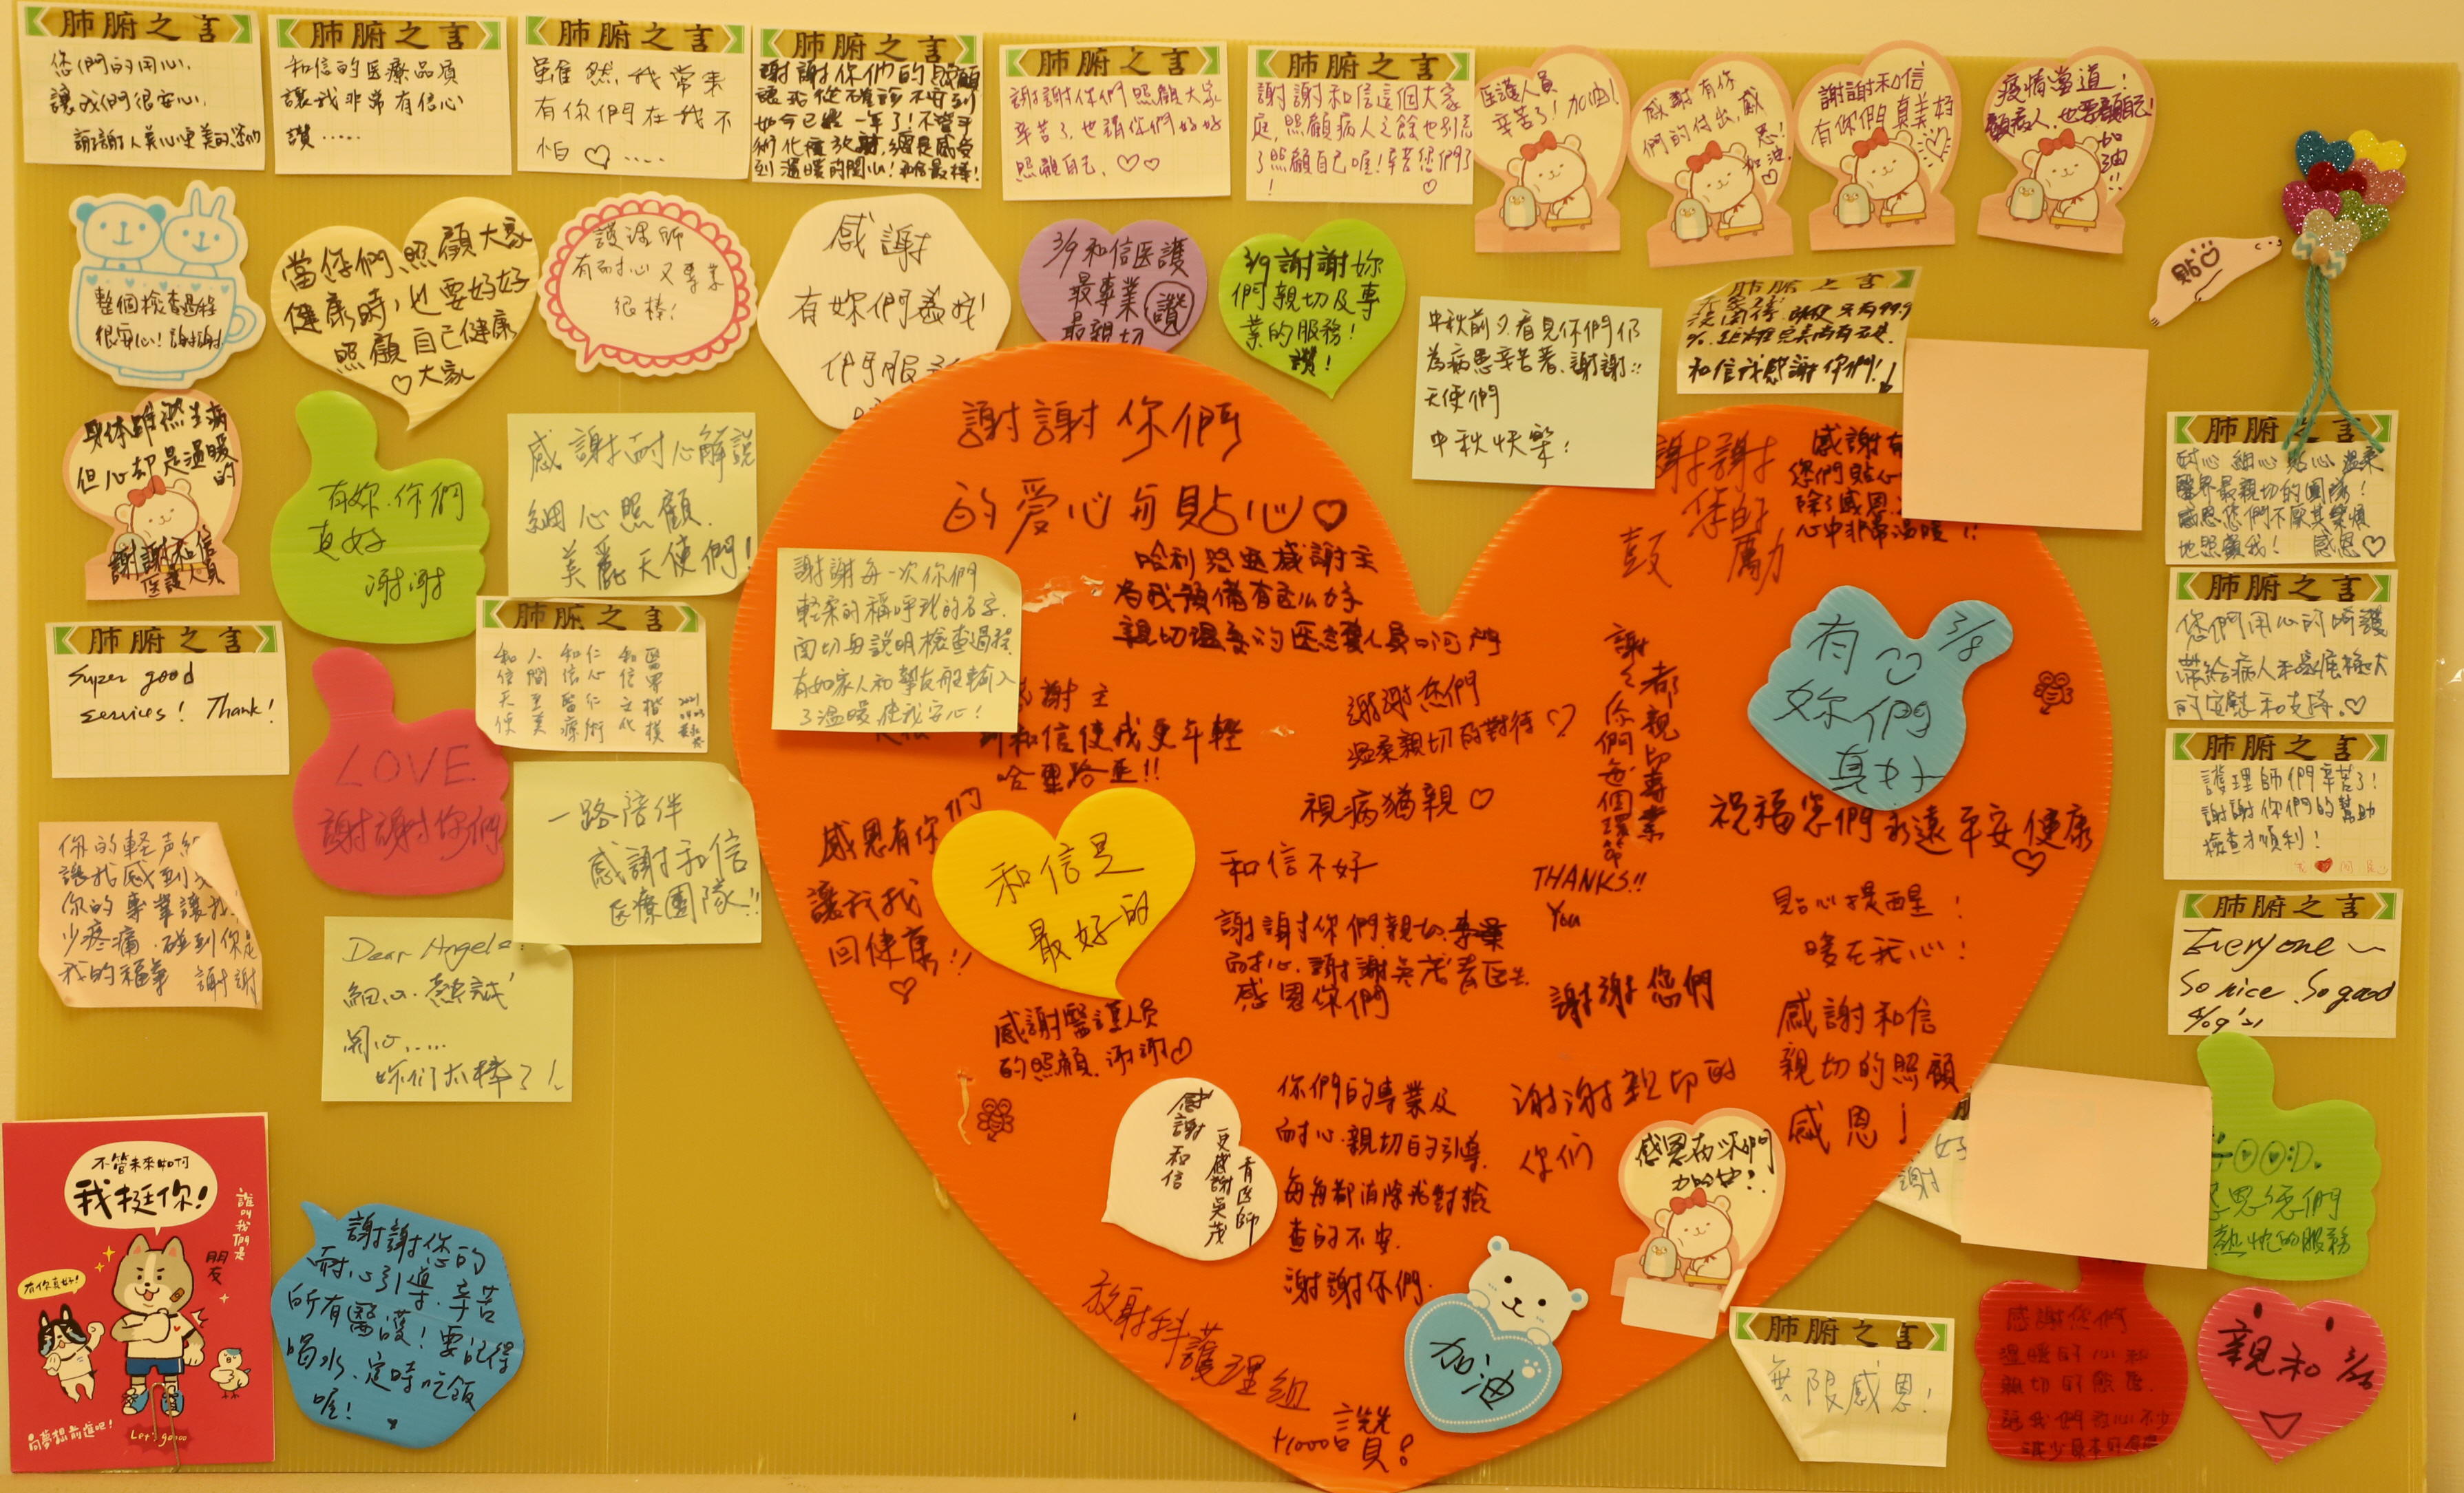 肺腑之言
您們的用心,
讓我們很安心,
謝謝人美心更美的您們
肺腑之言
和信的医療品質
讓我非常有信心
讚.....
肺腑之言
雖然我常來
有你們在我不
怕♡....
肺腑之言
謝謝你們的照顧
讓我從不確定不安到
如今已經一年了!不管手
術化療放射,總是感受
到溫暖的關心!和信最棒!
肺腑之言
謝謝你們照顧大家
辛苦了,也請你們好好
照顧自己,♡♡
肺腑之言
謝謝和信這個大家
庭,照顧病人之餘也別忘
了照顧自己喔!辛苦您們了
!♡
医護人員
辛苦了!加油!
感謝有你
們的付出,感恩!
加油♡
謝謝和信
有你們真美好
疫情當道!
顧病人,也要顧自己!
加油!!
貼
整個檢查過程
很安心!謝謝
當你們照顧大家
健康時,也要好好
照顧自己健康
♡大家
護理師
有耐心又專業
很棒!
感謝
有妳們為我
們服
3/9和信医護
最專業
讚
最親切
3/9謝謝妳
們親切及專
業的服務!
讚!
中秋前夕,看見你們仍
為病患辛苦著,謝謝!!
天使們
中秋快樂!
肺腑之言
和信我感謝你們!
身体雖然生病
但心却是溫暖
的
謝謝和信
医護人員
有妳.你們
真好
谢谢
感謝耐心解說
細心照顧.
美麗天使們!
肺腑之言
Super good
services! Thank!
肺腑之言
和信天使
人間至美
和信醫療
仁心仁術
和信文化
醫界楷模
LOVE
謝謝你們
一路陪伴
感謝和信
医療團隊!!
你的軽声細
讓我感到
你的專業讓我
少疼痛.碰到你是
我的福氣 謝謝
Dear Angels:
細心.熱誠
関心.....
妳们太棒了!
不管未來如何
我挺你!
誰叫我們是
朋友
有你真好!
向夢想前進吧!
Let's gooo
謝謝您的
耐心引導.辛苦
所有醫護!要記得
喝水.定時吃飯
喔!
謝謝你們
的愛心与貼心♡
哈利路亞感謝主
為我預備有這么好
親切溫柔的医護人員阿門
謝謝每一次你們
輕柔的稱呼我的名字.
面切每說明檢查過程
有如家人和摯友般輸入
了溫暖使我安心!
感謝主
和信使我更年輕
哈里路亚!!
謝謝您們
溫柔親切的對待♡
視病猶親♡
謝謝你們每個環節
都親切專業
謝謝
您的
鼓勵
感謝有
您們貼心
除了感恩
心中非常溫暖!!
有
妳們
真好
3/8
祝福您們永遠平安健康
♡
感恩有你們
讓我找
回健康!!
♡
和信是
最好的
和信不好
謝謝你們親切.專業
耐心.謝謝吳茂青医生
感恩你們
THANKS!!
You
貼心提醒!
暖在我心!
謝謝您們
感謝醫護人员
的照顧.谢谢♡
感謝和信
親切的照顧
感恩!
你們的專業及
耐心.親切的引導.
每每都消除我對檢
查的不安.
謝謝你們.
谢谢親切的
你们
感謝和信
更感謝吳茂
青医師
感恩有你們
加油
放射科護理組
+1000讚!
肺腑之言
耐心 細心 貼心 溫柔
醫界最親切的團隊!
感恩您們不厭其煩
地照顧我! 感恩♡
肺腑之言
您們用心的呵護
帶給病人和家屬極大
的安慰和支持.♡
肺腑之言
護理師們辛苦了!
謝謝你們的幫助
檢查才順利!
肺腑之言
Everyone~
So nice. So good
4/09'21
GOOD.
感恩您們
熱忱的服務
肺腑之言
無限感恩!
感謝您們
溫暖的心和
親切的態度.
讓我們放心不少
親和 3/26